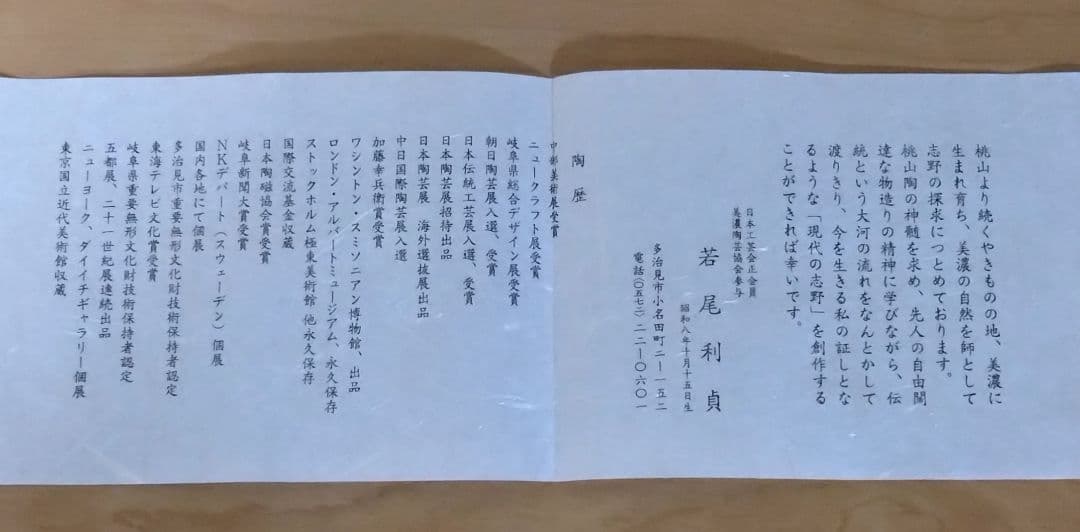 桃山より続くやきものの地、美濃に
生まれ育ち、美濃の自然を師として
志野の探求につとめております。
桃山陶の神髄を求め、先人の自由闊
達な物造りの精神に学びながら、伝
統という大河の流れをなんとかして
渡りきり、今を生きる私の証しとな
るような「現代の志野」を創作する
ことができれば幸いです。
日本工芸会正会員
美濃陶芸協会参与
若尾利貞
昭和八年十月十五日生
多治見市小名田町二ー一五二
電話(〇五七二)二二ー〇六〇一
陶歴
中部美術展受賞
ニュークラフト展受賞
岐阜県総合デザイン展受賞
朝日陶芸展入選、受賞
日本伝統工芸展入選、受賞
日本陶芸展招待出品
日本陶芸展 海外選抜展出品
中日国際陶芸展入選
加藤幸兵衛賞受賞
ワシントン・スミソニアン博物館、出品
ロンドン・アルバートミュージアム、永久保存
ストックホルム極東美術館 他永久保存
国際交流基金収蔵
日本陶磁協会賞受賞
岐阜新聞大賞受賞
NKデパート(スウェーデン)個展
国内各地にて個展
多治見市重要無形文化財技術保持者認定
東海テレビ文化賞受賞
岐阜県重要無形文化財技術保持者認定
五都展、二十一世紀展連続出品
ニューヨーク、ダイイチギャラリー個展
東京国立近代美術館収蔵